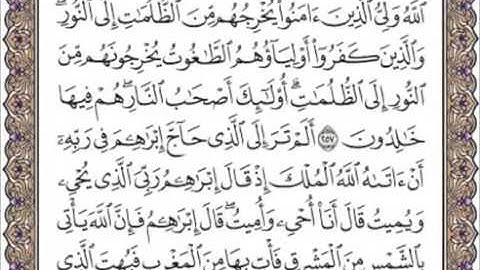 ٱللَّهُ وَلِىُّ ٱلَّذِينَ ءَامَنُوا۟ يُخْرِجُهُم مِّنَ ٱلظُّلُمَـٰتِ إِلَى ٱلنُّورِ ۖ
وَٱلَّذِينَ كَفَرُوٓا۟ أَوْلِيَآؤُهُمُ ٱلطَّـٰغُوتُ يُخْرِجُونَهُم مِّنَ
ٱلنُّورِ إِلَى ٱلظُّلُمَـٰتِ ۗ أُو۟لَـٰٓئِكَ أَصْحَـٰبُ ٱلنَّارِ ۖ هُمْ فِيهَا
خَـٰلِدُونَ ٢٥٧ أَلَمْ تَرَ إِلَى ٱلَّذِى حَآجَّ إِبْرَٰهِـۧمَ فِى رَبِّهِۦٓ
أَنْ ءَاتَىٰهُ ٱللَّهُ ٱلْمُلْكَ إِذْ قَالَ إِبْرَٰهِـۧمُ رَبِّىَ ٱلَّذِى يُحْىِۦ
وَيُمِيتُ قَالَ أَنَا۠ أُحْىِۦ وَأُمِيتُ ۖ قَالَ إِبْرَٰهِـۧمُ فَإِنَّ ٱللَّهَ يَأْتِى
بِٱلشَّمْسِ مِنَ ٱلْمَشْرِقِ فَأْتِ بِهَا مِنَ ٱلْمَغْرِبِ فَبُهِتَ ٱلَّذِى